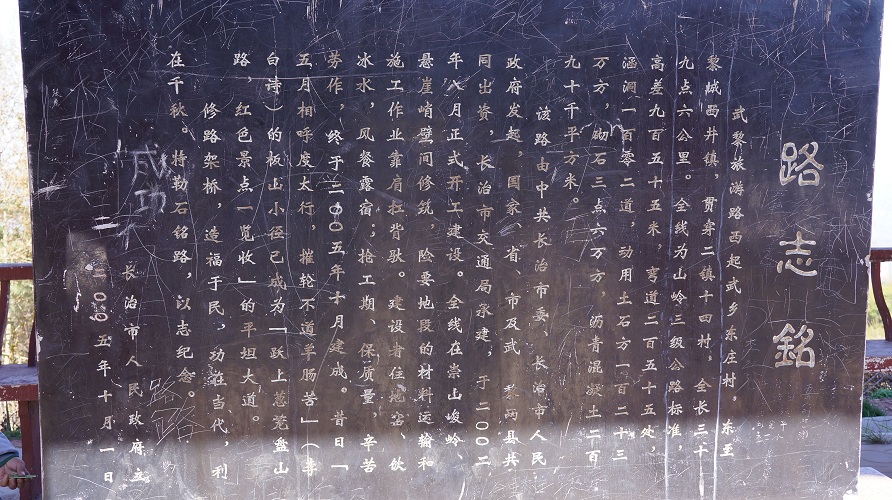 路志銘
武黎旅游路西起武乡东庄村，东至
黎城西井镇，贯穿二镇十四村，全长三十
九点六公里。全线为山岭三级公路标准，
高差九百五十五米，弯道二百五十五处，
涵洞一百零二道，动用土石方一百二十三
万方，砌石三点六万方，沥青混凝土二百
九十千平方米。
该路由中共长治市委、长治市人民
政府发起，国家、省、市及武 黎两县共
同出资，长治市交通局承建，于二〇〇二
年八月正式开工建设。全线在崇山峻岭、
悬崖峭壁间修筑，险要地段的材料运输和
施工作业靠肩扛背驮。建设者住地窑、饮
冰水，风餐露宿；抢工期、保质量，辛苦
劳作，终于二〇〇五年十月建成。昔日「
五月相呼度太行，摧轮不道羊肠苦」（李
白诗）的板山小径已成为「跃上葱茏盘山
路，红色景点一览收」的平坦大道。
修路架桥，造福于民，功在当代，利
在千秋。特勒石铭路，以志纪念。
成功
路路
长治市人民政府立
二〇〇五年十月一日